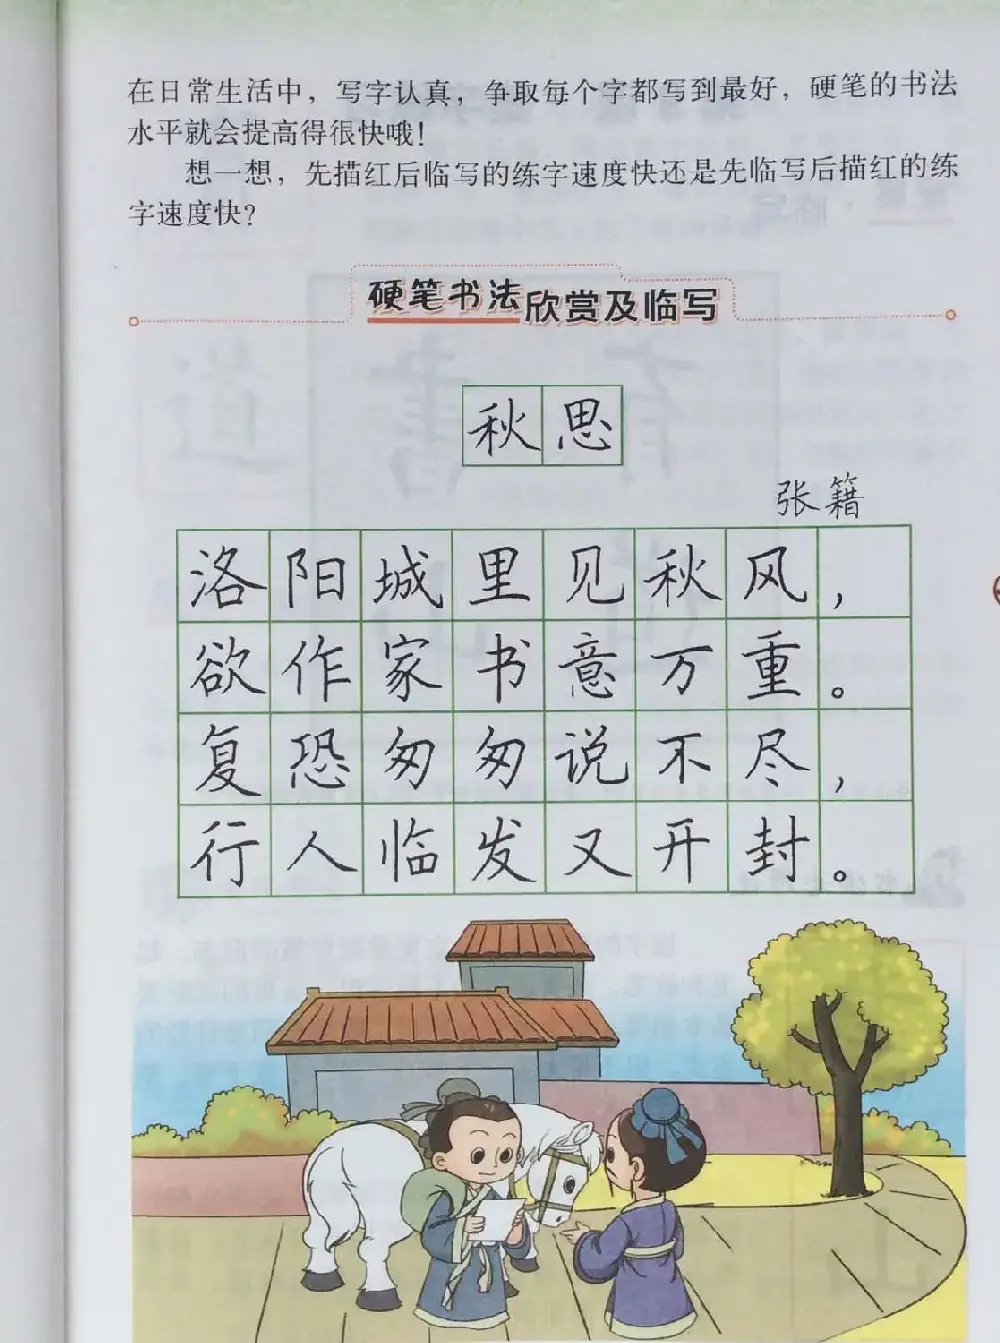 在日常生活中，写字认真，争取每个字都写到最好，硬笔的书法
水平就会提高得很快哦！
想一想，先描红后临写的练字速度快还是先临写后描红的练
字速度快？
硬笔书法欣赏及临写
秋思
张籍
洛阳城里见秋风，
欲作家书意万重。
复恐匆匆说不尽，
行人临发又开封。